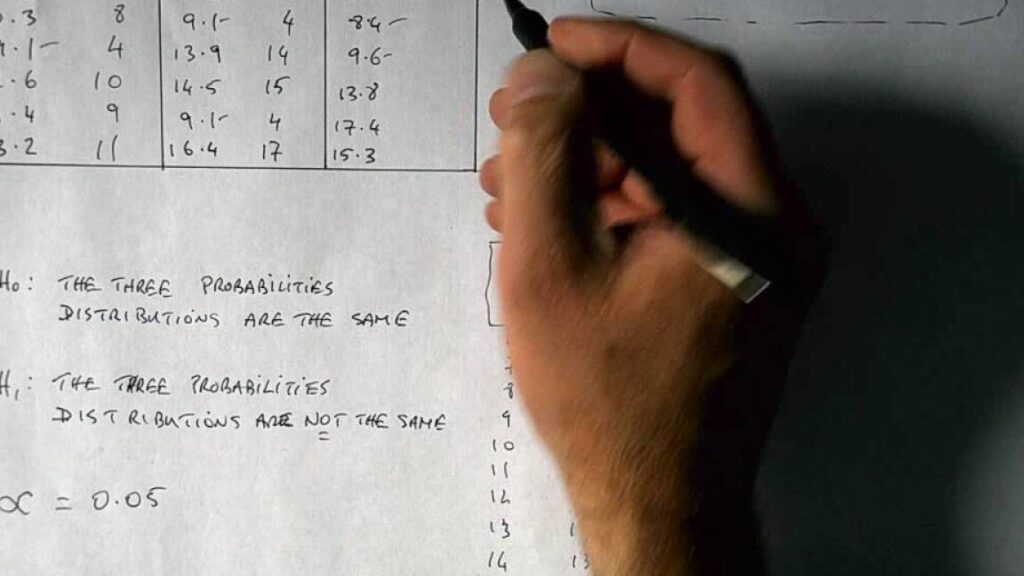 .3 8 9.1- 4 8.4-
.1- 4 13.9 14 9.6-
.6 10 14.5 15 13.8
.4 9 9.1- 4 17.4
3.2 11 16.4 17 15.3
H0: THE THREE PROBABILITIES
DISTRIBUTIONS ARE THE SAME
H1: THE THREE PROBABILITIES
DISTRIBUTIONS ARE NOT THE SAME
∝ = 0.05
8
9
10
11
12
13
14 13